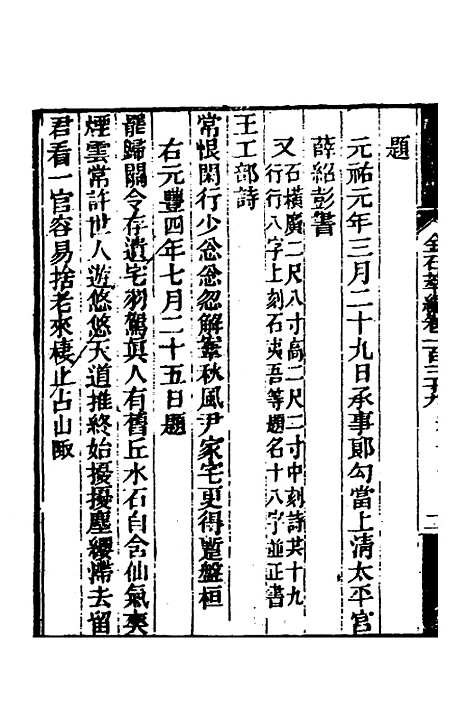 金石萃編卷一百三十九
二
題
元祐元年三月二十九日承事郎勾當上清太平宮
薛紹彭書
又石橫廣二尺八寸高二尺二寸中刻詩共十九
行行八字上刻石夷吾等題名十八字並正書
王工部詩
常恨閑行少忩忩忽解寨秋風尹家宅更得蹔盤桓
右元豐四年七月二十五日題
罷歸關令存遺宅羽駕眞人有舊丘水石自含仙氣爽
煙雲常許世人遊悠悠天道推終始擾擾塵纓懶去留
君看一官容易捨老來棲止占山陬